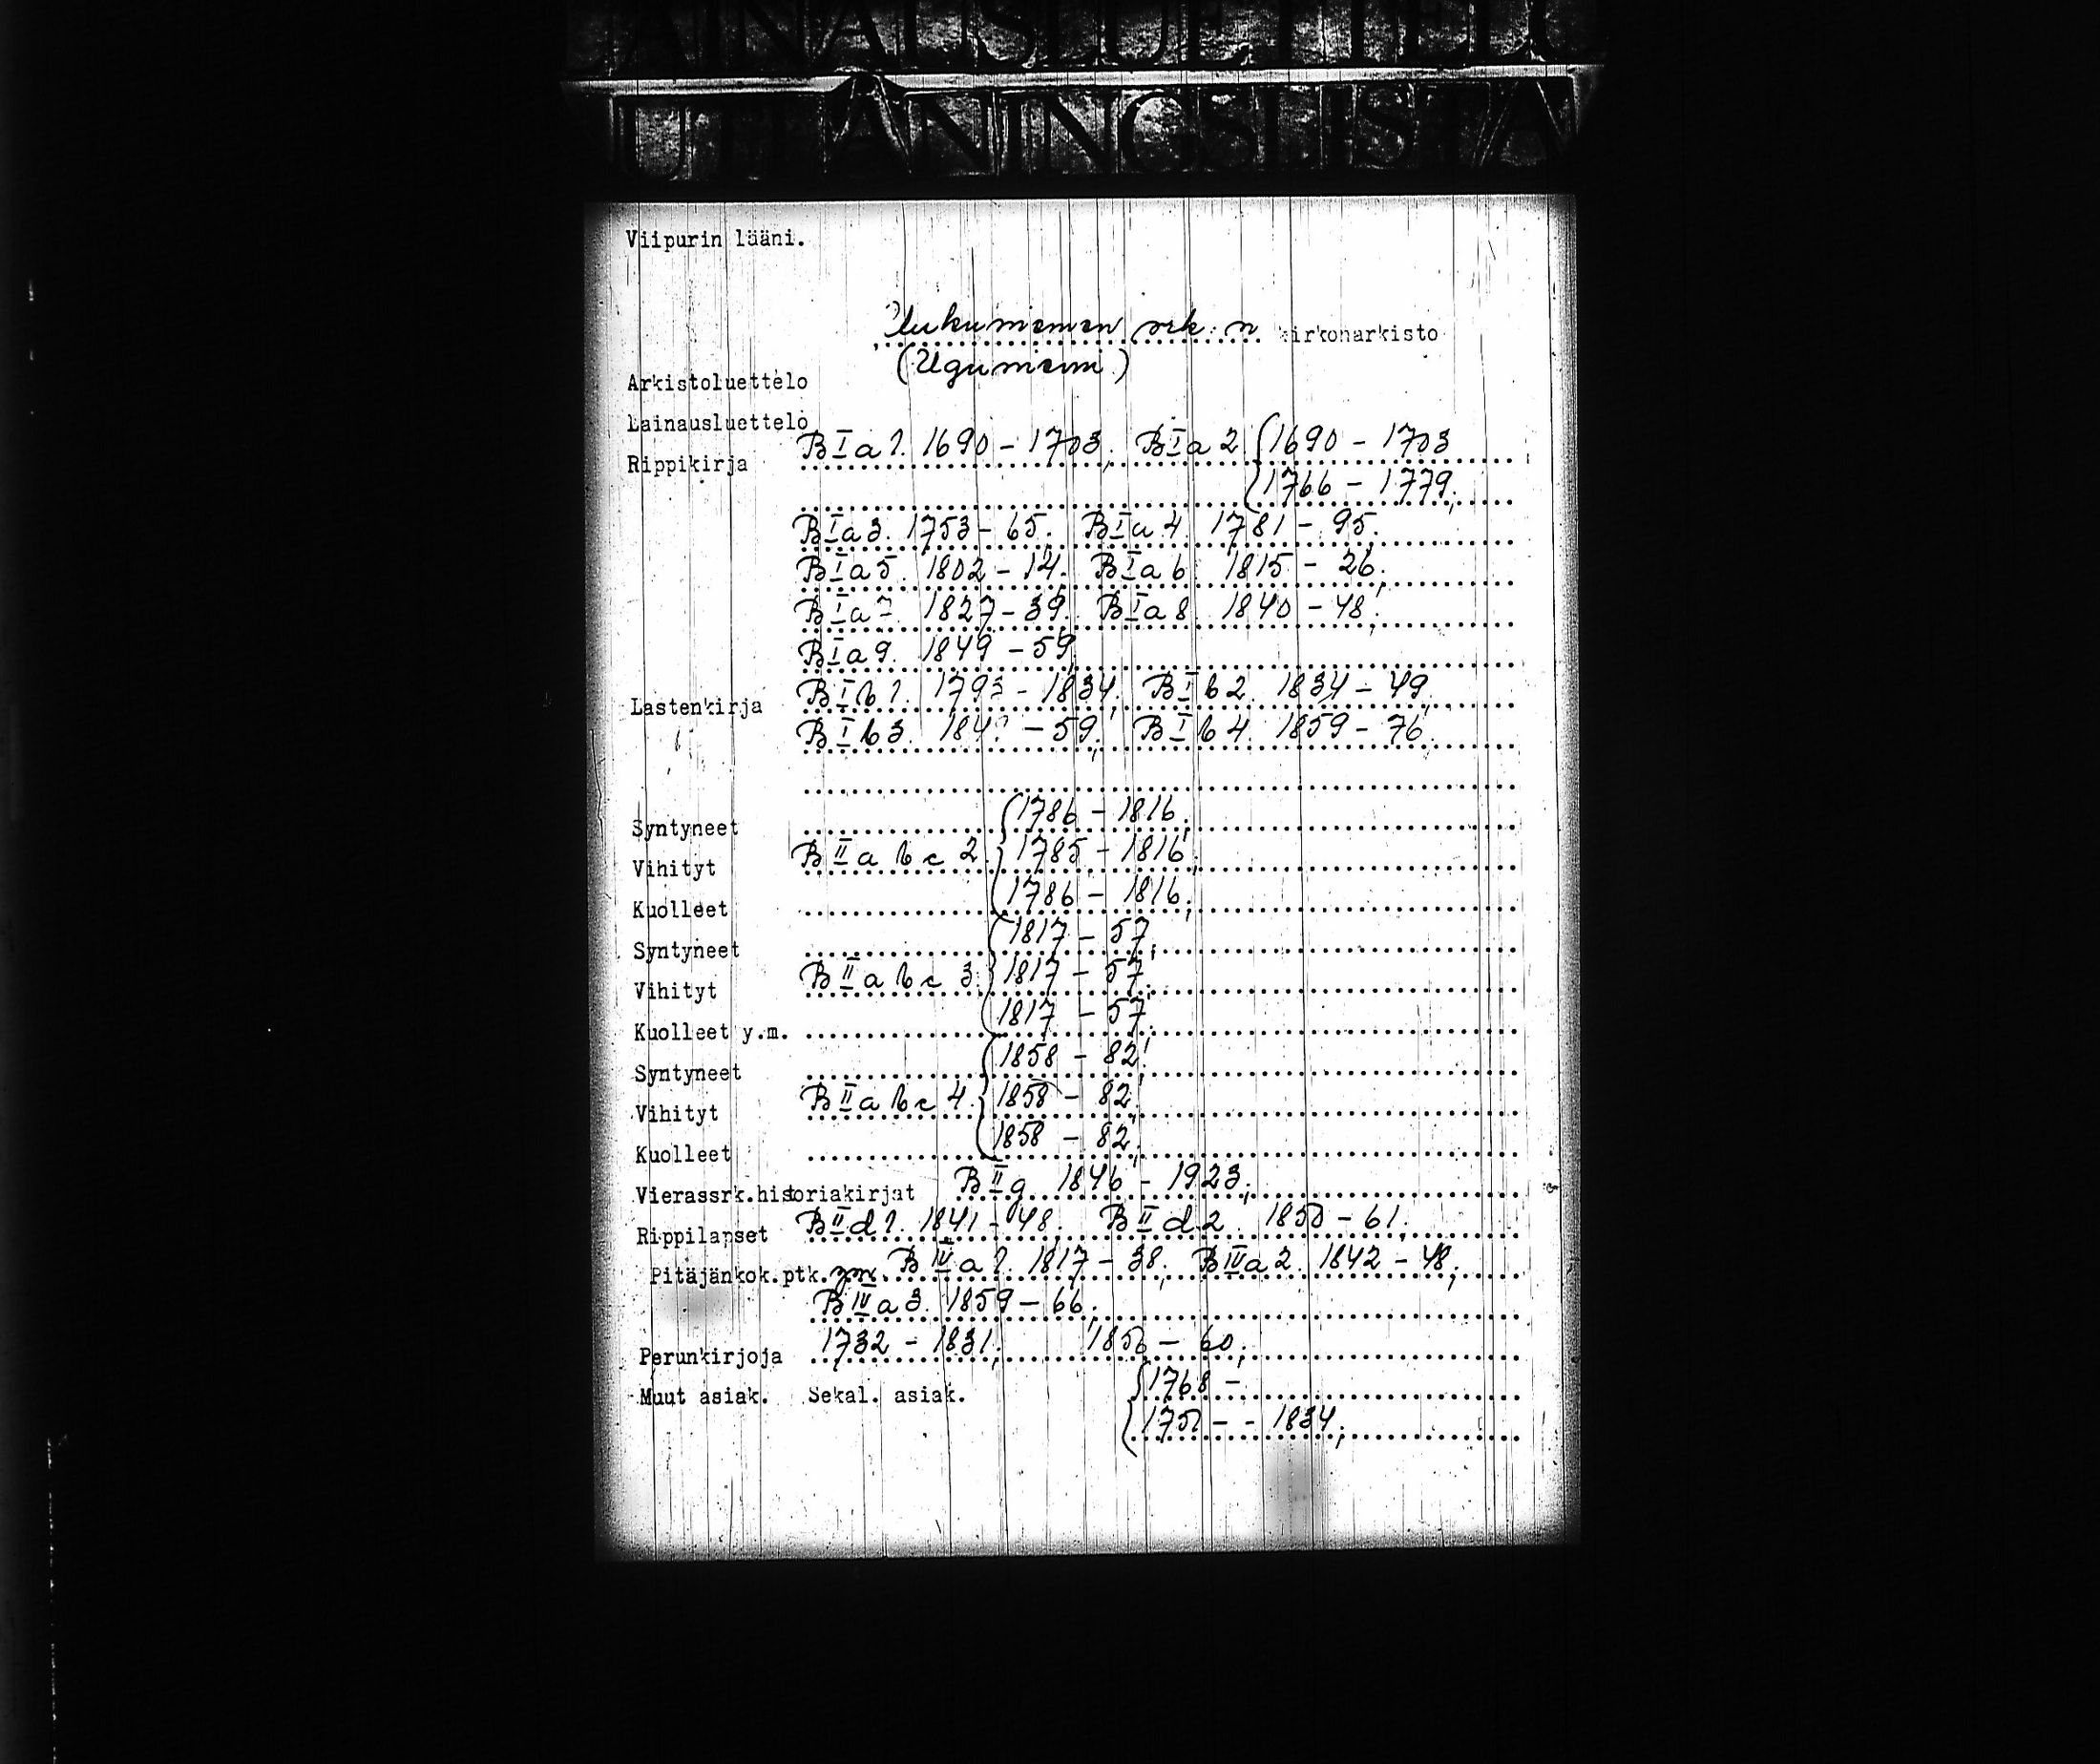 LAINAUSLUETTELO
UTLÅNINGSLISTA
Viipurin lääni.
Uukuniemen srk:n kirkonarkisto
(Uguniemi)
Arkistoluettelo
Lainausluettelo
Rippikirja B I a 1. 1690 - 1703; B I a 2 { 1690 - 1703
1766 - 1779;
B I a 3. 1753 - 65. B I a 4. 1781 - 95.
B I a 5. 1802 - 14. B I a 6. 1815 - 26;
B I a 7. 1827 - 39. B I a 8. 1840 - 48;
B I a 9. 1849 - 59;
Lastenkirja B I b 1. 1793 - 1834. B I b 2. 1834 - 49,
B I b 3. - 59; B I b 4. 1859 - 76.
Syntyneet 1786 - 1816;
Vihityt B II a b c 2. 1785 - 1816;
Kuolleet 1786 - 1816;
Syntyneet 1817 - 57;
Vihityt B II a b c 3. 1817 - 57;
Kuolleet y.m. 1817 - 57;
Syntyneet 1858 - 82;
Vihityt B II a b c 4. 1858 - 82;
Kuolleet 1858 - 82;
Vierassrk.historiakirjat B II g 1846 - 1923;
Rippilapset B II d 1. 1841 - 48. B II d 2. 1850 - 61.
Pitäjänkok.ptk. ym. B IV a 1. 1817 - 38; B IV a 2. 1842 - 48;
B IV a 3. 1859 - 66.
Perunkirjoja 1732 - 1831; - 60;
Muut asiak. Sekal. asiak. { 1768 -
- - 1834;